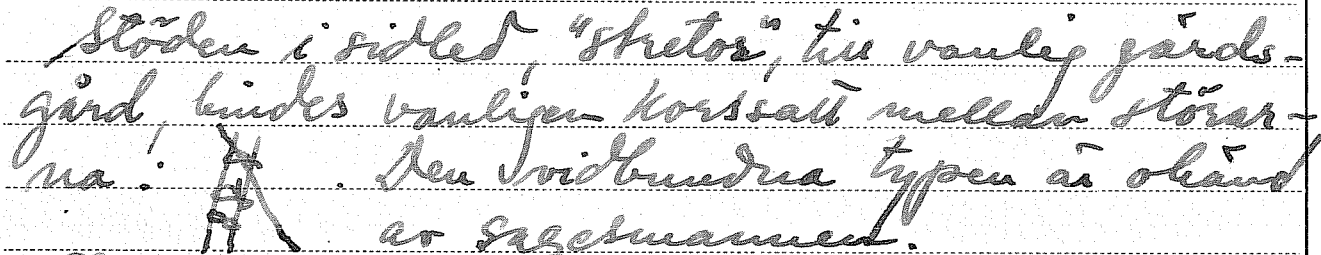 Stöden i sidled, "stretor", till vanlig gärds-
gård, bindes vanligen korssatt mellan störar-
na: . Den vidbundna typen är okänd
av sagesmannen.